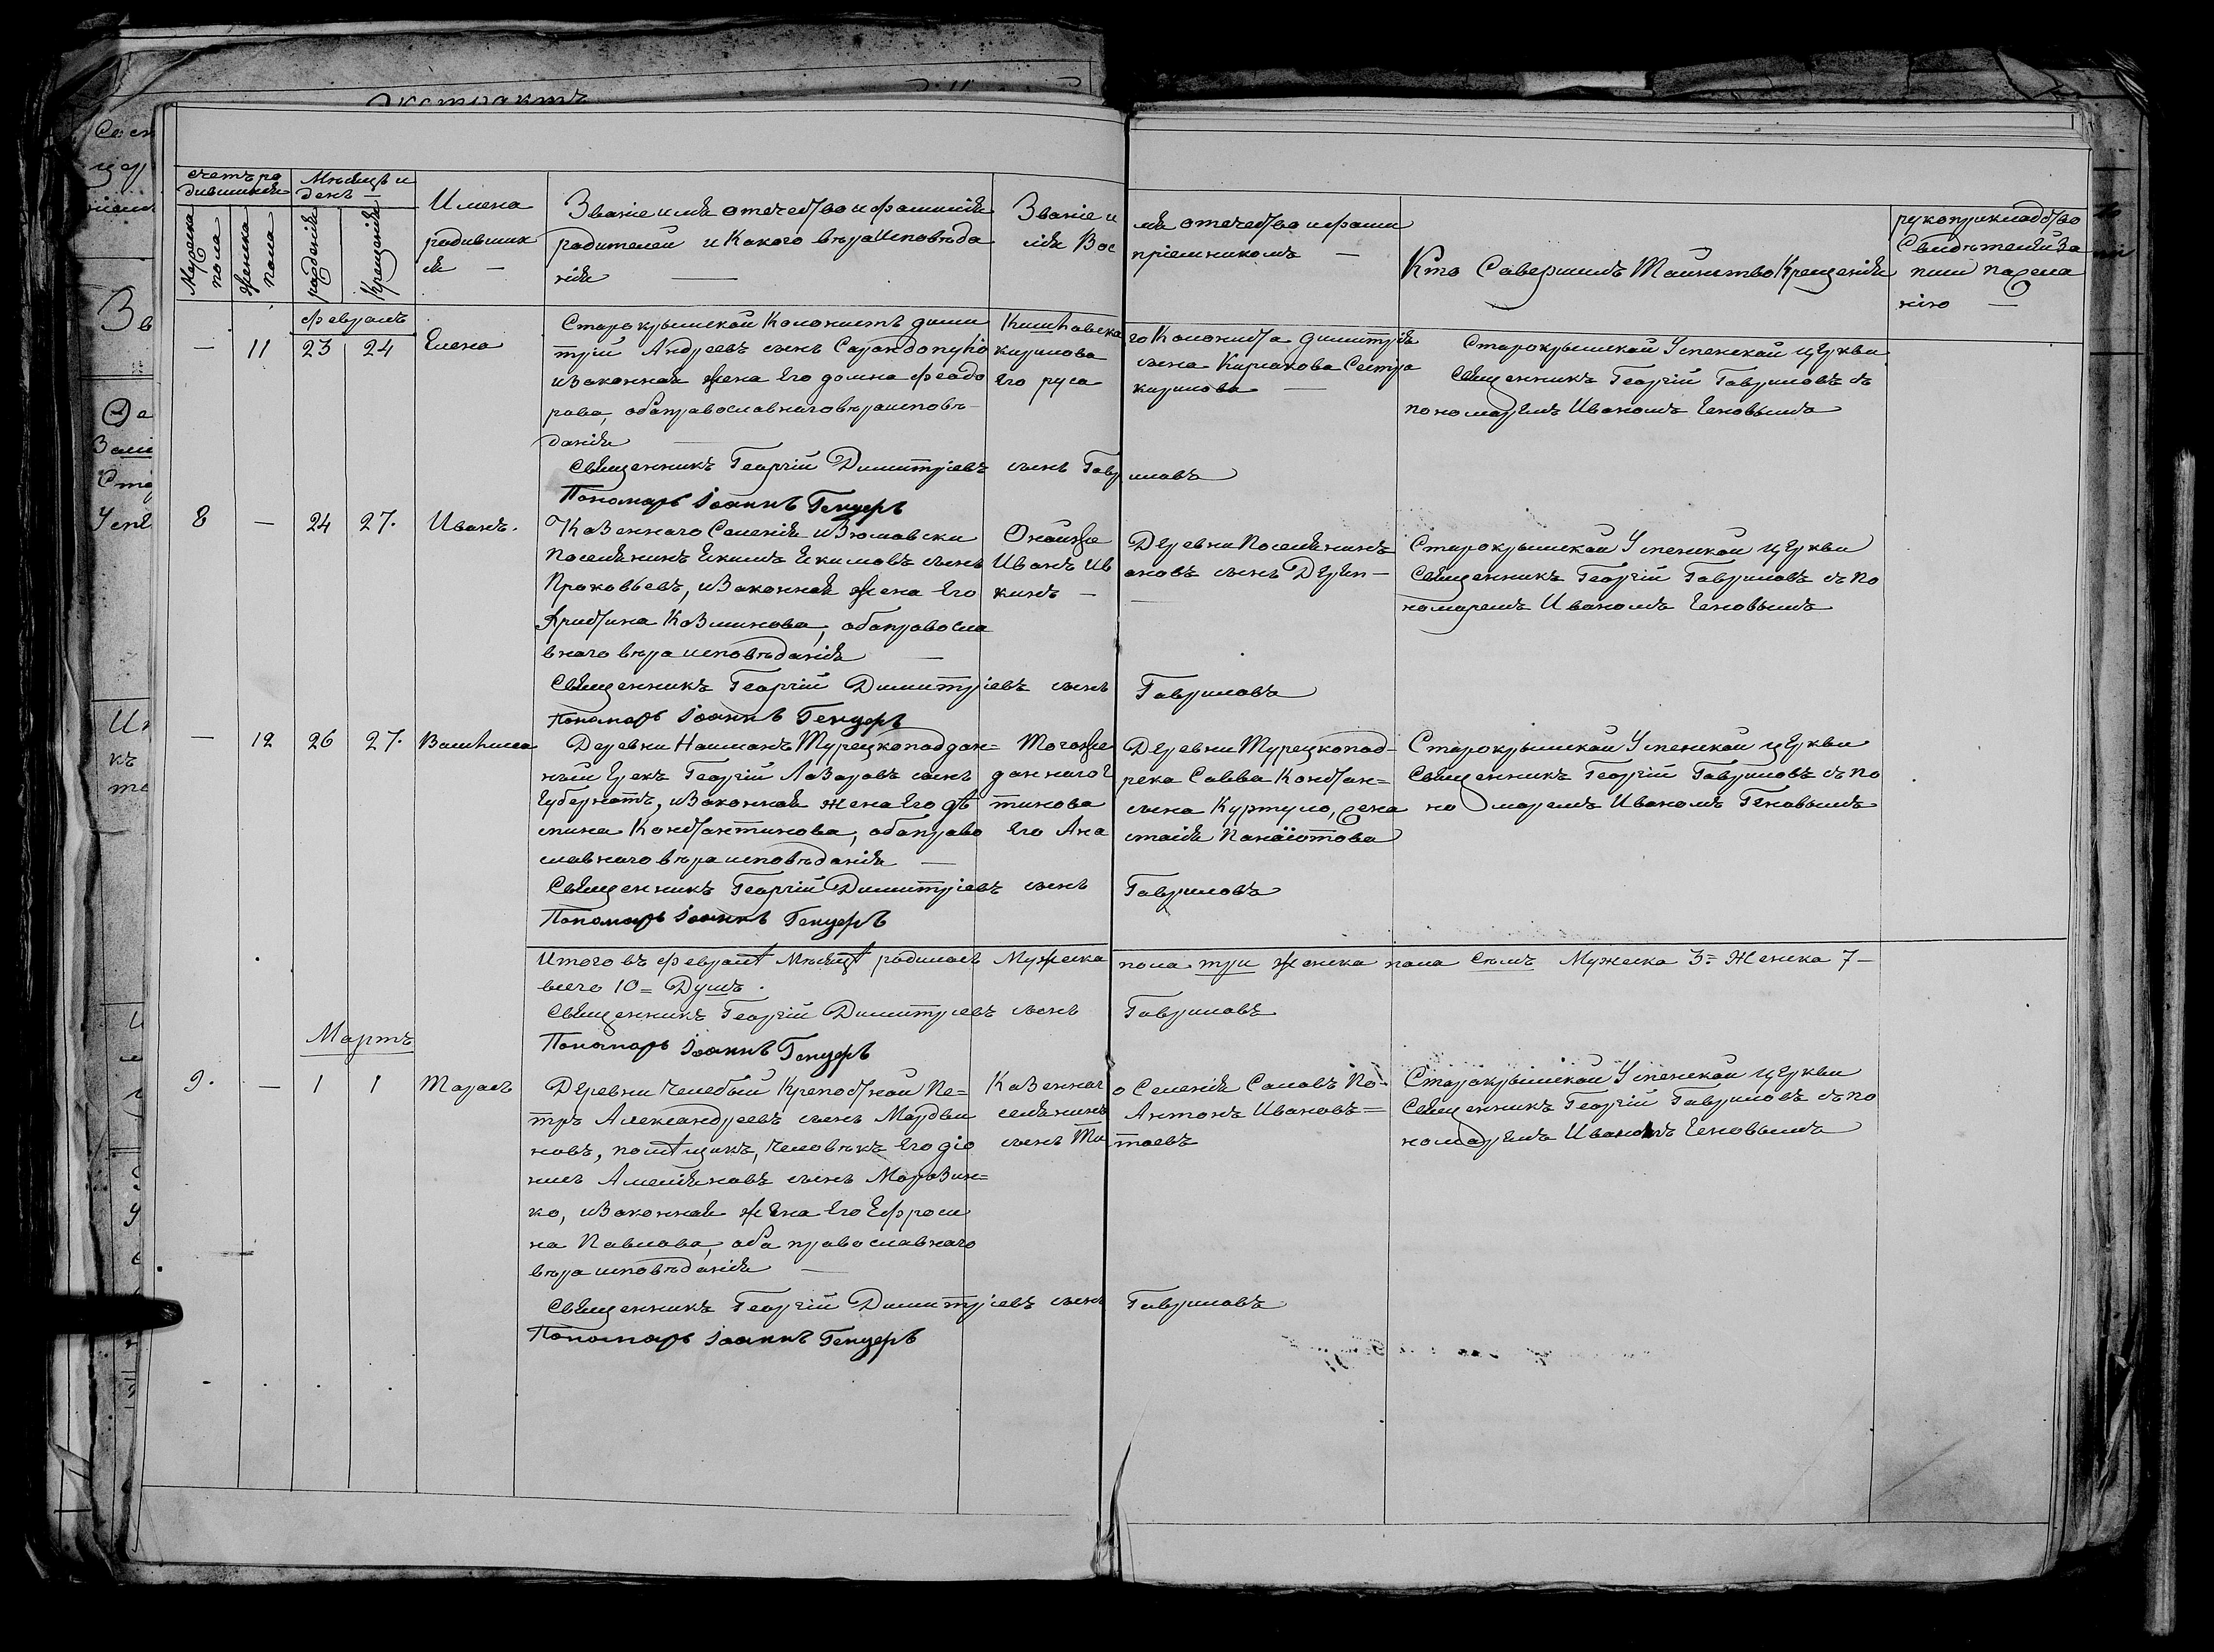 Экстрактъ
счетъ ро
дившихся
Мѣсяцъ и
день —
Мужеска
пола
Женска
пола
рожденія
Крещенія
Имена
родивших
ся —
Званіе имя отечество и фамилія
родителей и Какого вѣроисповѣда
нія —
Званіе и
мя отечество и фами
лія Вос
пріемникомъ —
Кто Савершилъ Таинство Крещенія
рукоприкладство
Свидѣтелей за
писи пажела
нію —
февраль
— 11 23 24 Елена
Старокрымской Колонистъ дими
трій Андреевъ сынъ
и законная жена Его домна феодо
рова, оба православнаго вѣроисповѣ-
данія —
го Колониста димитрія
кирилова сына
Его руса кирилова —
Старокрымской Успенской церкви
Священникъ Георгій Гавриловъ съ
пономаремъ Иваномъ Геновымъ
Священникъ Георгій Димитріевъ сынъ Гавриловъ
Пономарь Іоаннъ
8 — 24 27. Иванъ.
Казеннаго Селенія
Поселянинъ Екимъ Екимовъ сынъ
Проковьевъ, и законная жена Его
Христина Козминова, оба правосла
внаго вѣроисповѣданія —
Онойже Деревни Поселянинъ
Иванъ Ивановъ сынъ
Старокрымской Успенской церкви
Священникъ Георгій Гавриловъ съ по
номаремъ Иваномъ Геновымъ
Священникъ Георгій Димитріевъ сынъ Гавриловъ
Пономарь Іоаннъ
— 12 26 27.
Деревни Найманъ Турецкоподдан=
ный Грекъ Георгій Лазаровъ сынъ
и законная жена Его дѣ
спина Константинова, оба право
славнаго вѣроисповѣданія —
Тогоже Деревни Турецкопод-
даннаго Грека Савва Констан=
тинова сына Куртуло, жена
Его Анастасія Панаіотова
Старокрымской Успенской церкви
Священникъ Георгій Гавриловъ съ по
номаремъ Иваномъ Геновымъ
Священникъ Георгій Димитріевъ сынъ Гавриловъ
Пономарь Іоаннъ
Итого въ февралѣ Мѣсяцѣ родилось Мужеска пола три Женска пола Семъ Мужеска 3= Женска 7 —
всего 10= Душъ.
Священникъ Георгій Димитріевъ сынъ Гавриловъ
Пономарь Іоаннъ
Мартъ
9. — 1 1 Тарасъ
Деревни Челебѣи Крепостной Пе=
тръ Александреевъ сынъ Мордви
новъ, помѣщикъ, человѣкъ Его діо
нисъ сынъ Морозин=
ко, и законная жена Его Ефроси
на Павлова, оба православнаго
вѣроисповѣданія —
Казеннаго Селенія Саловъ По-
селянинъ Антонъ Ивановъ=
сынъ
Старокрымской Успенской церкви
Священникъ Георгій Гавриловъ съ по
номаремъ Иваномъ Геновымъ
Священникъ Георгій Димитріевъ сынъ Гавриловъ
Пономарь Іоаннъ